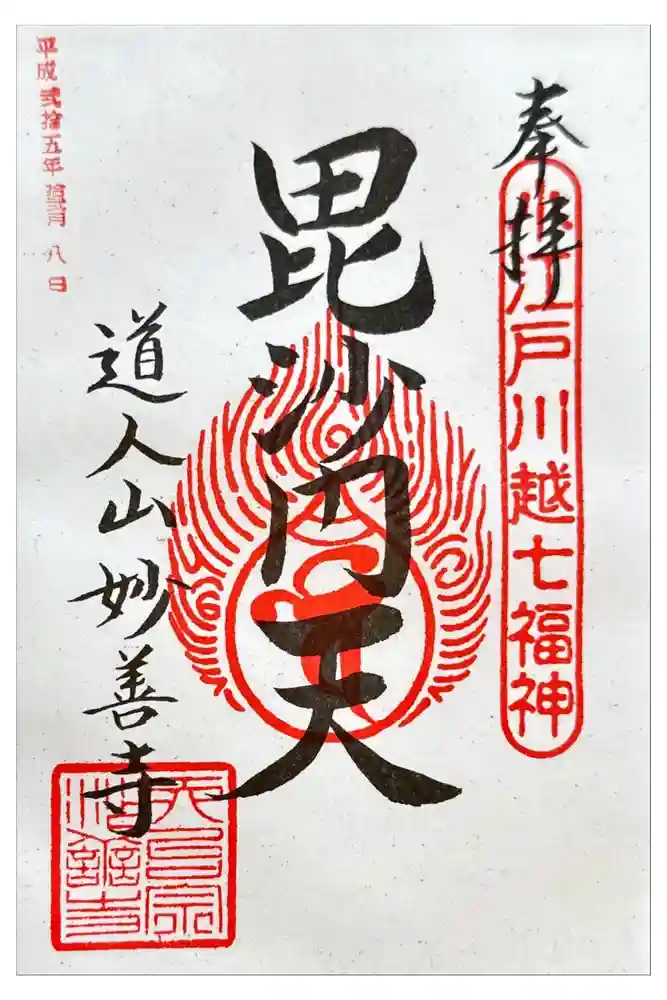 奉拝
小江戸川越七福神
毘沙門天
道人山妙善寺
天台宗
妙善寺
平成弐拾五年拾弐月八日